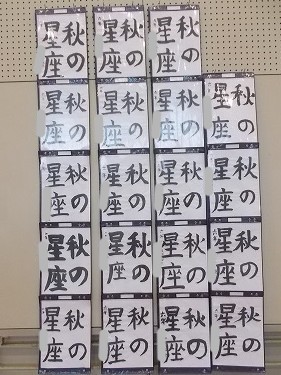 秋の
星座
秋の
星座
秋の
星座
秋の
星座
秋の
星座
秋の
星座
秋の
星座
秋の
星座
秋の
星座
秋の
星座
秋の
星座
秋の
星座
秋の
星座
秋の
星座
秋の
星座
秋の
星座
秋の
星座
秋の
星座
秋の
星座